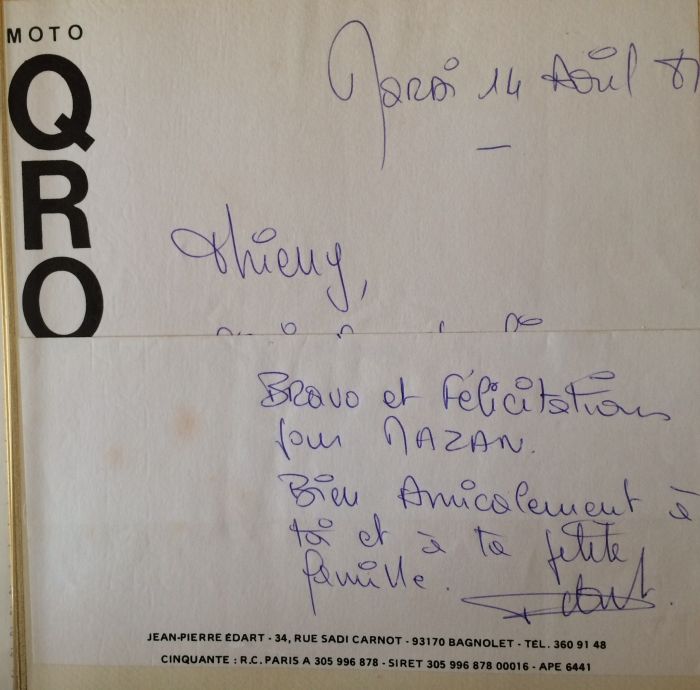 MOTO
QRO
Mardi 14 Avril 81
Thierry,
Bravo et Félicitations
pour MAZAN.
Bien Amicalement à
toi et à ta petite
famille.
JEAN-PIERRE ÉDART - 34, RUE SADI CARNOT - 93170 BAGNOLET - TEL. 360 91 48
CINQUANTE : R.C. PARIS A 305 996 878 - SIRET 305 996 878 00016 - APE 6441